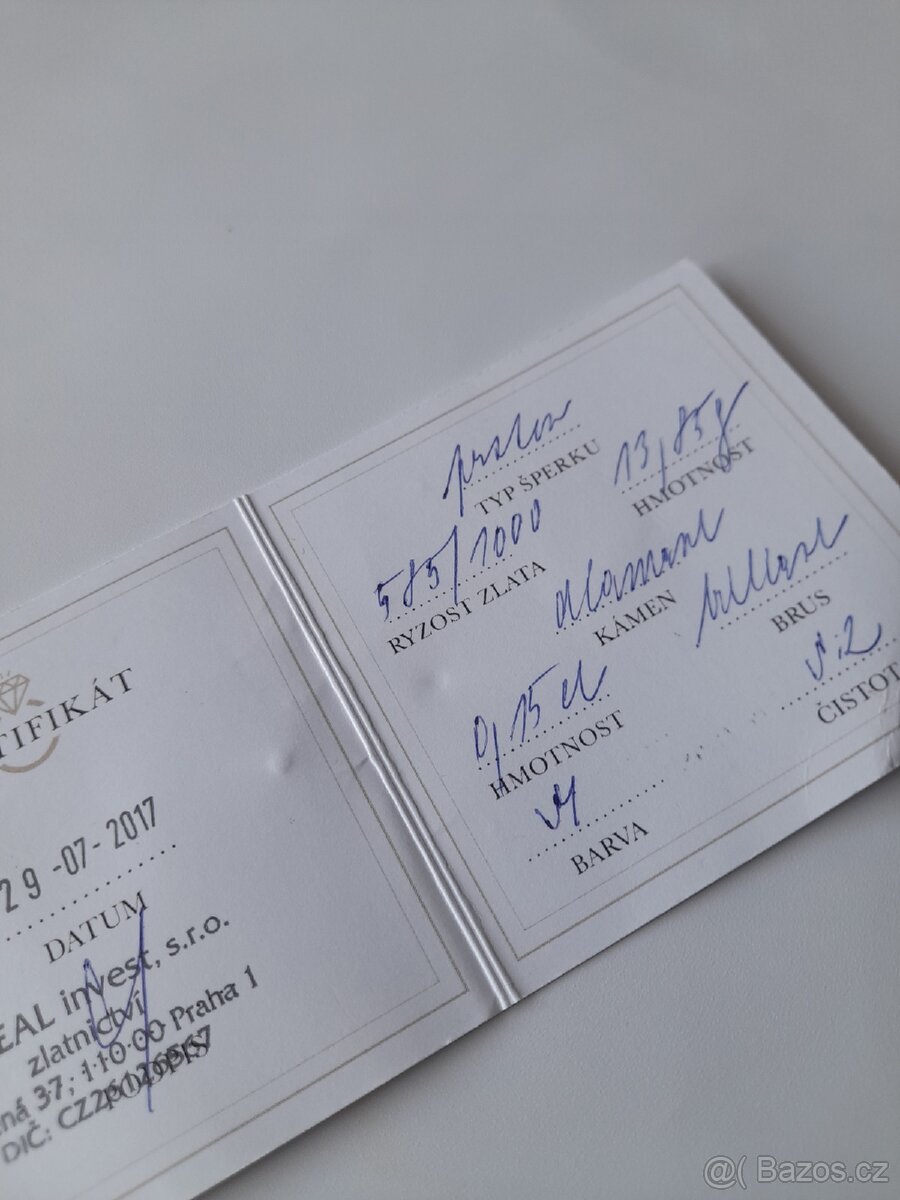 TIFIKÁT
29-07-2017
DATUM
EAL invest, s.r.o.
zlatnictví
ná 37; 110 00 Praha 1
PODPIS
DIČ: 
prsten
TYP ŠPERKU
13,85g
HMOTNOST
585/1000
RYZOST ZLATA
diamant
KÁMEN
briliant
BRUS
0,15 ct
HMOTNOST
si2
ČISTOT
BARVA
@( Bazos.cz